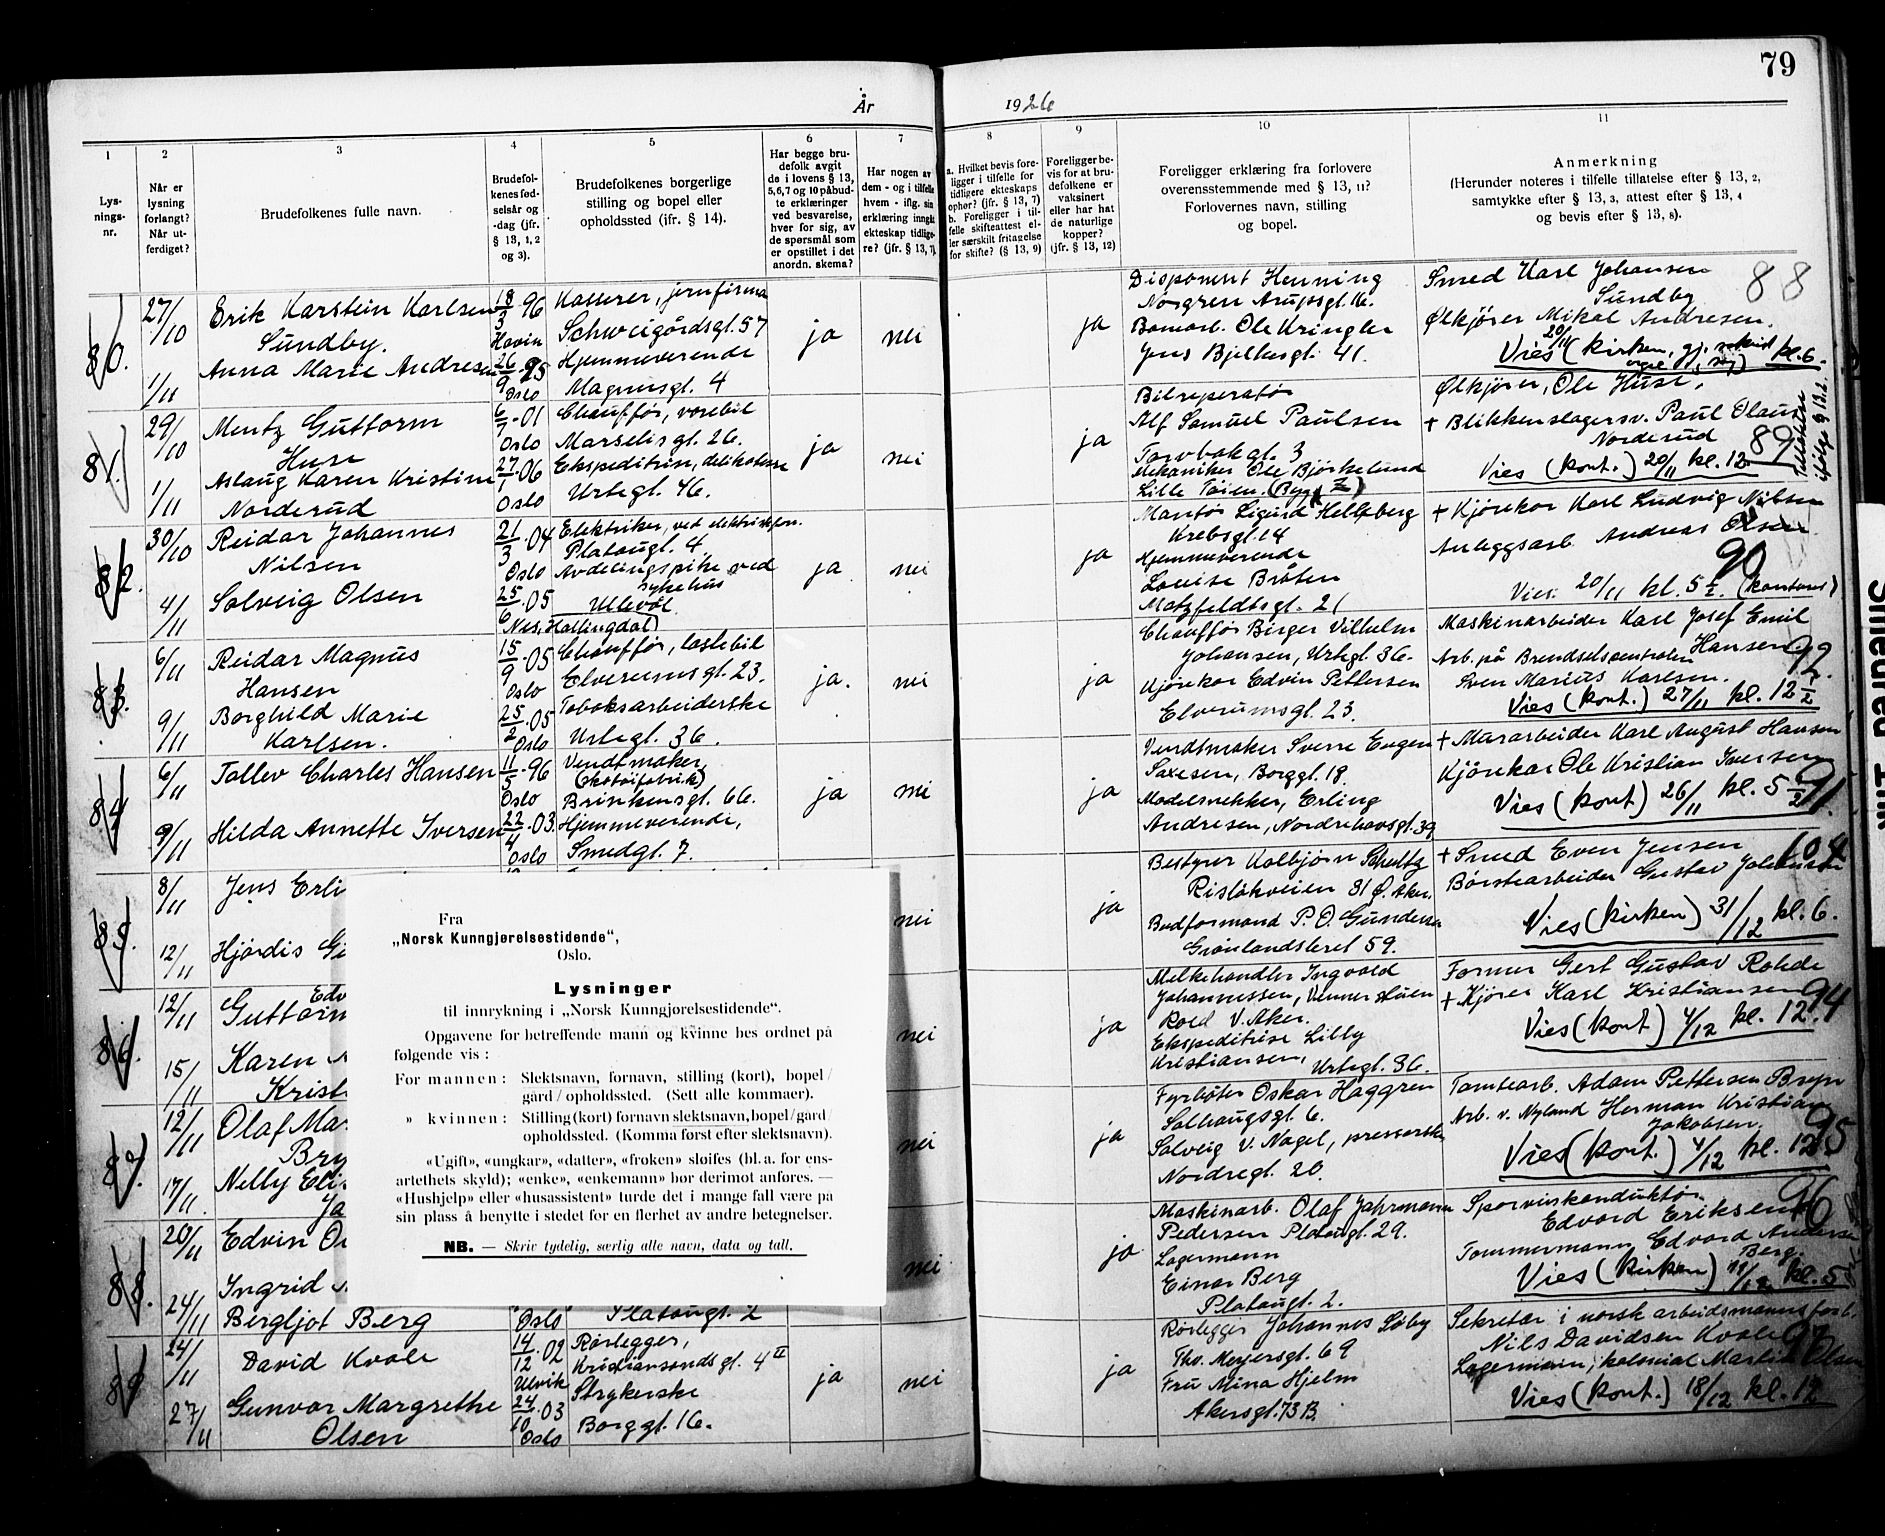 79
År 1926
1
Lys-
nings-
nr.
2
Når er
lysning
forlangt?
Når ut-
ferdiget?
3
Brudefolkenes fulle navn.
4
Brudefol-
kenes fød-
selsår og
-dag (jfr.
§ 13, 1, 2
og 3).
5
Brudefolkenes borgerlige
stilling og bopel eller
opholdssted (ifr. § 14).
6
Har begge bru-
defolk avgit
de i lovens § 13,
5,6,7 og 10 påbud-
te erklæringer
ved besvarelse,
hver for sig, av
de spørsmål som
er opstillet i det
anordn. skema?
7
Har nogen av
dem - og i tilfelle
hvem - iflg. sin
erklæring inngått
ekteskap tidlige-
re? (jfr. § 13, 7).
8
a. Hvilket bevis fore-
ligger i tilfelle for
tidligere ekteskaps
ophør? (jfr. § 13, 7)
b. Foreligger i til-
felle skifteattest el-
ler særskilt fritagelse
for skifte? (§ 13, 9)
9
Foreligger be-
vis for at bru-
defolkene er
vaksinert
eller har hat
de naturlige
kopper?
(jfr. § 13, 12)
10
Foreligger erklæring fra forlovere
overensstemmende med § 13, 11?
Forlovernes navn, stilling
og bopel.
11
Anmerkning
(Herunder noteres i tilfelle tillatelse efter § 13, 2,
samtykke efter § 13, 3, attest efter § 13, 4
og bevis efter § 13, 8).
80.
27/10
1/11
Erik Karstein Karlsen
Sundby.
Anna Marie Andresen
18/3 96
Hovin
26/9 95
Oslo
Kasserer, jernfirma
Schweigårdsgt. 57
Hjemmeverende
Magnusgt. 4
ja
nei
ja
Disponent Henning
Norgren Arupsgt. 16.
Bomarb. Ole Kringler
Jens Bjelkesgt. 41.
Smed Karl Johansen
Sundby
88
Ølkjører Mikal Andresen.
20/11
Vies (kirken, kl. 6.
81.
29/10
1/11
Mentz Guttorm
Huse
Aslaug Karen Kristine
Norderud
6/7 - 01
Oslo
27/1 - 06
Oslo
Chauffør, varebil
Marselisgt. 26.
Ekspeditrise, delikatesse
Urtegt. 46.
ja
nei
ja
Bilreperatør
Alf Samuel Paulsen
Torvbakgt. 3
Mekaniker Ole Bjørkelund
Lille Tøien. (Byg. Z)
Ølkjører, Ole Huse,
+ Blikkenslagersv. Paul Olaus
Norderud
89
Vies (kont.) 20/11 kl. 12.
Tillatelse
ifølge § 13.2.
82.
30/10
4/11
Reidar Johannes
Nilsen
Solveig Olsen
21/3 04
Oslo
25/6 05
Nes, Hallingdal)
Elektriker, ved elektriskforr.
Platougt. 4
Avdelingspike ved
sykehus
Ullevål
ja
nei
ja
Montør Sigurd Helleberg
Krebsgt. 14
Hjemmeverende
Louise Bråten
Motzfeldtsgt. 21
+ Kjørekar Karl Ludvig Nilsen
Anleggsarb. Andreas Olsen
90
Vies. 20/11 kl. 5 1/2. (kontoret)
83.
6/11
9/11
Reidar Magnus
Hansen
Borghild Marie
Karlsen.
15/9 - 05
Oslo
25/2 - 05
Oslo
Chauffør, lastebil
Elverumsgt. 23.
Tobaksarbeiderske
Urtegt. 36.
ja.
nei
ja
Chauffør Birger Vilhelm
Johansen, Urtegt. 36.
Kjørekar Edvin Pettersen
Elverumsgt. 23.
Maskinarbeider Karl Josef Emil
Hansen.
Arb. på Brendselscentralen
Sven Marius Karlsen.
92
Vies (kont.) 27/11 kl. 12 1/2
84.
6/11
9/11
Tallev Charles Hansen
Hilda Annette Iversen
11/5 - 96
Oslo
22/4 - 03.
Oslo
Vendtmaker
(skotøifabrik)
Brinkensgt. 66.
Hjemmeverende,
Smedgt. 7.
ja
nei
ja
Vendtmaker Sverre Eugen
Saxesen, Borggt. 18.
Modelsnekker, Erling
Andresen, Nordrehovsgt. 39
+ Murarbeider Karl August Hansen
Kjørekar Ole Kristian Iversen
91.
Vies (kont) 26/11 kl. 5 1/2
85.
8/11
12/11
Jens Erli
Hjördis G
nei
ja
Bestyrer Kolbjørn Schultz
Risløkveien 31 Ø. Aker.
Budformand P. O. Gundersen
Grønlandsleret 59.
+ Smed Even Jensen
104
Børstearbeider Gustav Johansen
Vies (kirken) 31/12 kl. 6.
86.
12/11
15/11
Edv
Guttorm
Karen
Krist
nei
ja
Melkehandler Ingvald
Johannessen,
Roed V. Aker.
Ekspeditrise Lilly
Kristiansen, Urtegt. 36.
Former Gert Gustav Rohde
+ Kjører Karl Kristiansen
94
Vies (kont) 4/12 kl. 12.
87.
12/11
17/11.
Olaf Ma
Bry
Nelly Eli
Ja
nei
ja
Fyrbøter Oskar Haggren
Solhaugsgt. 6.
Solveig V. Nagel, presserske
Nordregt. 20.
Tomtearb. Adam Pettersen Bryn
Arb. v. Nyland Herman Kristian
Jakobsen.
95
Vies (kont.) 4/12 kl. 12
88.
20/11
24/11
Edvin O
Ingrid
Bergljot Berg
Oslo
Platougt. 2
nei
ja
Maskinarb. Olaf Jahrmann
Pedersen Platougt. 29.
Lagermann
Einar Berg
Platougt. 2.
Sporveiskonduktør
Edvard Eriksen
96
Tømmermann Edvard Andersen
Berg.
Vies (kirken) 19/12 kl. 5
89
24/11
27/11
David Kvale
Gunvor Margrethe
Olsen
14/12 02
Ulvik
24/10 03
Oslo
Rørlegger,
Kristiansandsgt. 4 II
Strykerske
Borggt. 16.
ja
nei
ja
Rørlegger Johannes Løby
Thv. Meyersgt. 69
Fru Mina Hjelm
Akersgt. 73 B.
Sekretær i norsk arbeidsmannsforb.
Nils Davidsen Kvale
97
Lagermann, kolonial Martin Olsen
Vies (kont.) 18/12 kl. 12
Fra
„Norsk Kunngjørelsestidende“,
Oslo.
Lysninger
til innrykning i „Norsk Kunngjørelsestidende“.
Opgavene for betreffende mann og kvinne bes ordnet på
følgende vis :
For mannen : Slektsnavn, fornavn, stilling (kort), bopel/
gård/opholdssted. (Sett alle kommaer).
» kvinnen : Stilling (kort) fornavn slektsnavn, bopel/gård/
opholdssted. (Komma først efter slektsnavn).
«Ugift», «ungkar», «datter», «frøken» sløifes (bl. a. for ens-
artethets skyld); «enke», «enkemann» bør derimot anføres. —
«Hushjelp» eller «husassistent» turde det i mange fall være på
sin plass å benytte i stedet for en flerhet av andre betegnelser.
NB. — Skriv tydelig, særlig alle navn, data og tall.